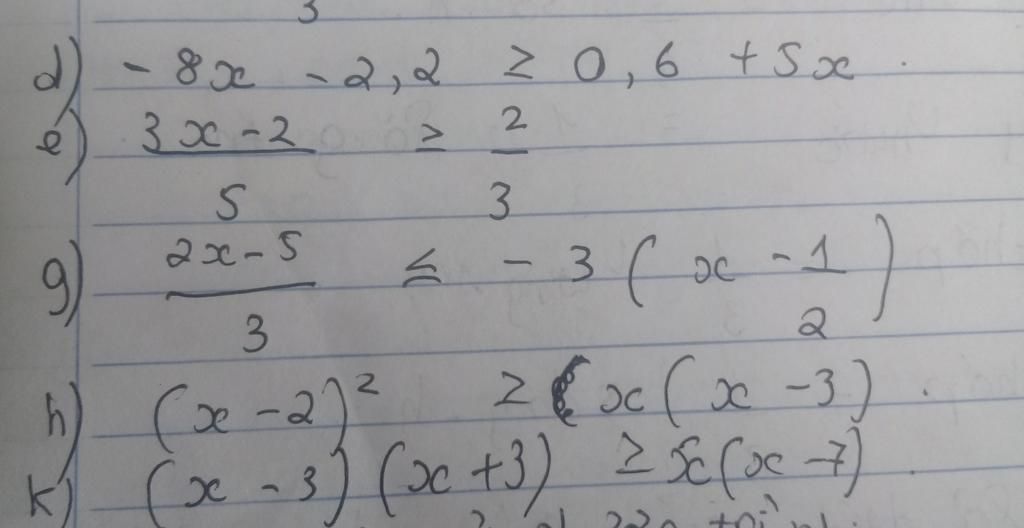 3
d) - 8x - 2,2 ≥ 0,6 + 5x.
e) (3x - 2)/5 ≥ 2/3
g) (2x - 5)/3 ≤ - 3 ( x - 1/2 )
h) (x - 2)² ≥ x ( x - 3 ).
k) (x - 3) (x + 3) ≥ x (x - 7).